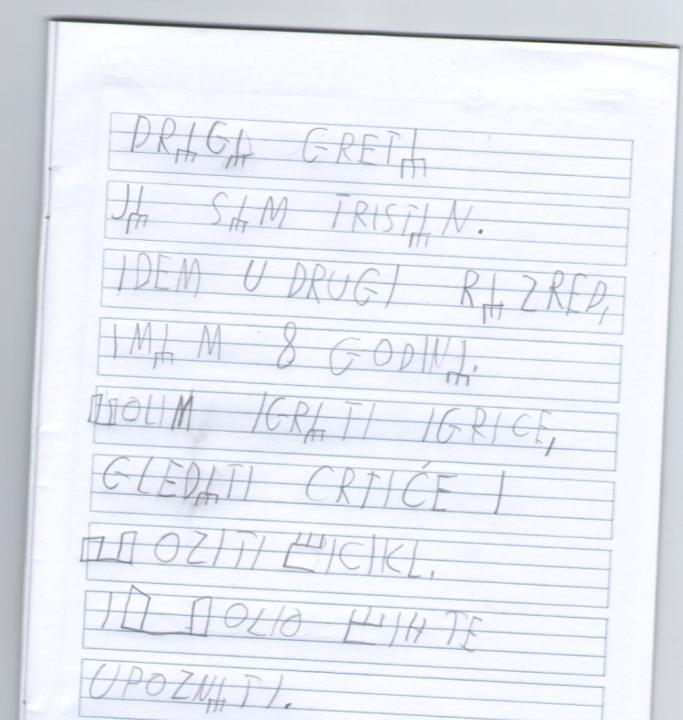 DRAGA GRETA
JA SAM TRISTAN.
IDEM U DRUGI RAZRED,
IMAM 8 GODINA.
VOLIM IGRATI IGRICE,
GLEDATI CRTIĆE I
VOZITI BICIKL.
VOLIO BIH TE
UPOZNATI.